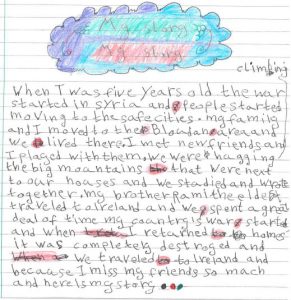 My story
My story
climbing
When I was five years old the war
started in syria and people started
moving to the safe cities. my family
and I moved to the Bloudan area and
we lived there. I met new friends and
I played with them. we were hugging
the big mountains that were next
to our houses and we studied and wrote
together. my brother Rami the eldest
traveled to Ireland and we spent a great
deal of time my country's war started
and when I returned to home
it was completely destroyed and
we traveled to Ireland and
because I miss my friends so much
and here is my story